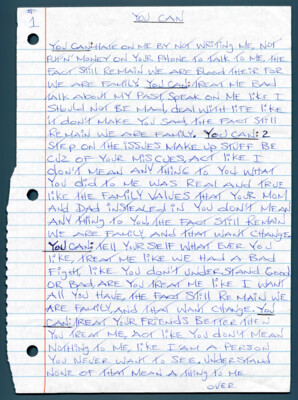 # 1
YOU CAN
YOU CAN: HATE ON ME BY NOT WRITING ME, NOT
PUT'N' MONEY ON YOUR PHONE TO TALK TO ME, THE
FACT STILL REMAIN WE ARE BLOOD THEIR FOR
WE ARE FAMILY. YOU CAN: TREAT ME BAD
TALK ABOUT MY PAST, SPEAK ON ME LIKE I
SHOULD NOT BE MAD, DEAL WITH LIFE LIKE
IT DON'T MAKE YOU SAD, THE FACT STILL
REMAIN WE ARE FAMILY. YOU CAN: 2
STEP ON THE ISSUES MAKE UP STUFF BE
CUZ OF YOUR MISCUES, ACT LIKE I
DON'T MEAN ANY THING TO YOU WHAT
YOU DID TO ME WAS REAL AND TRUE
LIKE THE FAMILY VALUES THAT YOUR MOM
AND DAD INSTEALED IN YOU DON'T MEAN
ANY THING TO YOU, THE FACT STILL REMAIN
WE ARE FAMILY AND THAT WANT CHANGE.
YOU CAN: TELL YOURSELF WHAT EVER YOU
LIKE, TREAT ME LIKE WE HAD A BAD
FIGHT, LIKE YOU DON'T UNDERSTAND GOOD
OR BAD, ARE YOU TREAT ME LIKE I WANT
ALL YOU HAVE, THE FACT STILL REMAIN WE
ARE FAMILY, AND THAT WANT CHANGE. YOU
CAN: TREAT YOUR FRIENDS BETTER THEN
YOU TREAT ME, ACT LIKE YOU DON'T MEAN
NOTHING TO ME, LIKE I AM A PERSON
YOU NEVER WANT TO SEE, UNDERSTAND
NONE OF THAT MEAN A THING TO ME
OVER